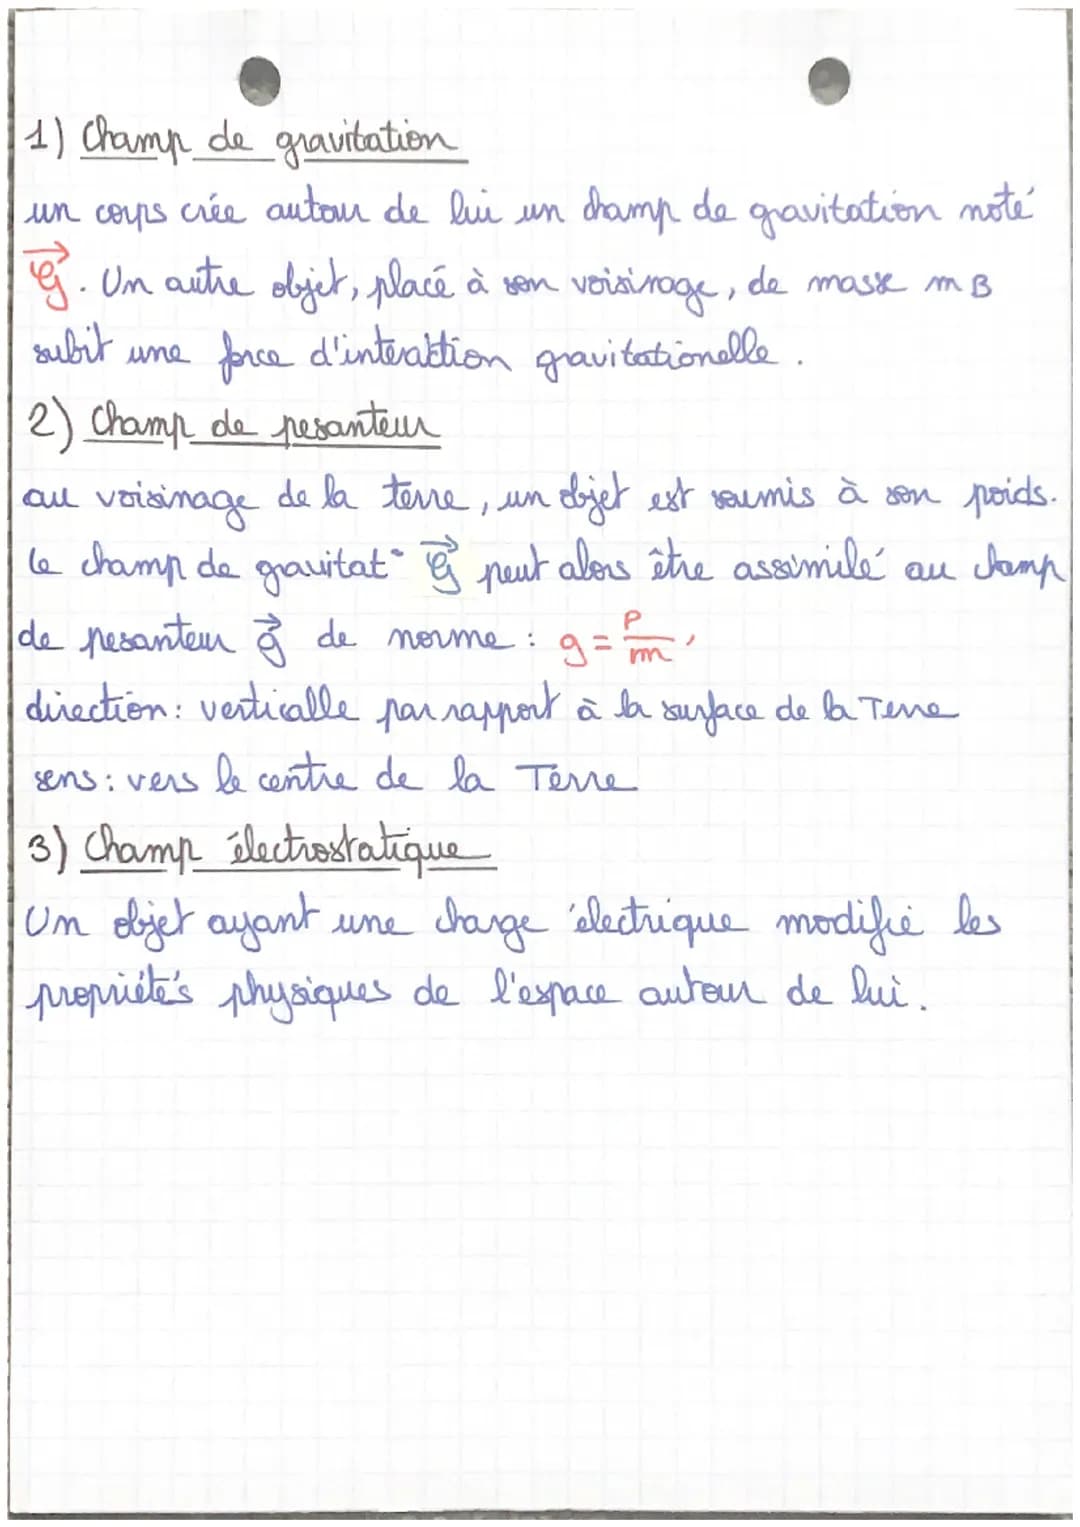 1) Champ de gravitation
un corps crée autour de lui un champ de gravitation noté
𝒢⃗. Un autre objet, placé à son voisinage, de masse m B
subit une force d'interaktion gravitationelle.
2) Champ de pesanteur
au voisinage de la terre, un objet est soumis à son poids.
le champ de gravitat° 𝒢⃗ peut alors être assimilé au champ
de pesanteur g⃗ de norme : g = P/m,
direction : verticalle par rapport à la surface de la Terre
sens : vers le centre de la Terre
3) Champ électrostatique
Un objet ayant une charge électrique modifié les
propriétés physiques de l'espace autour de lui.